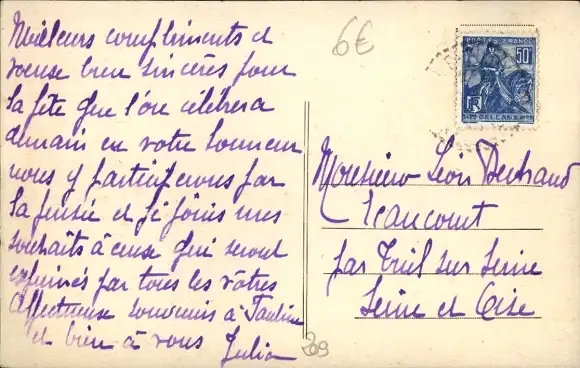 Meilleurs compliments et
voeux bien sincères pour
la fête que l'on célèbrera
demain en votre honneur
nous y participerons par
la pensée et je joins mes
souhaits à ceux qui seront
exprimés par tous les vôtres
Affectueux souvenirs à Pauline
et bien à vous Julia
6€
POSTES FRANCE
50c
RF
ORLEANS
Monsieur Léon Bertrand
par Triel sur Seine
Seine et Oise
209